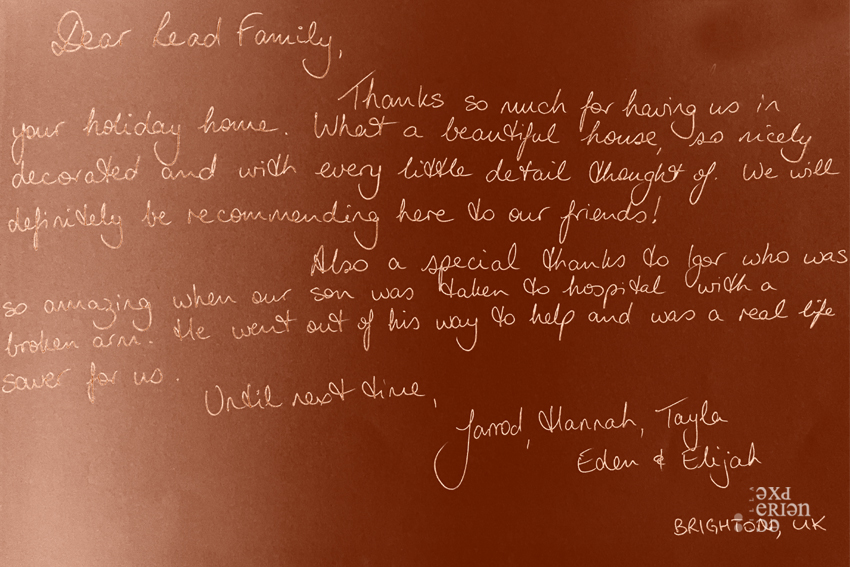 Dear Read Family,
Thanks so much for having us in
your holiday home. What a beautiful house, so nicely
decorated and with every little detail thought of. We will
definitely be recommending here to our friends!
Also a special thanks to Igor who was
so amazing when our son was taken to hospital with a
broken arm. He went out of his way to help and was a real life
saver for us.
Until next time,
Jarrod, Hannah, Tayla
Eden & Elijah
BRIGHTON, UK